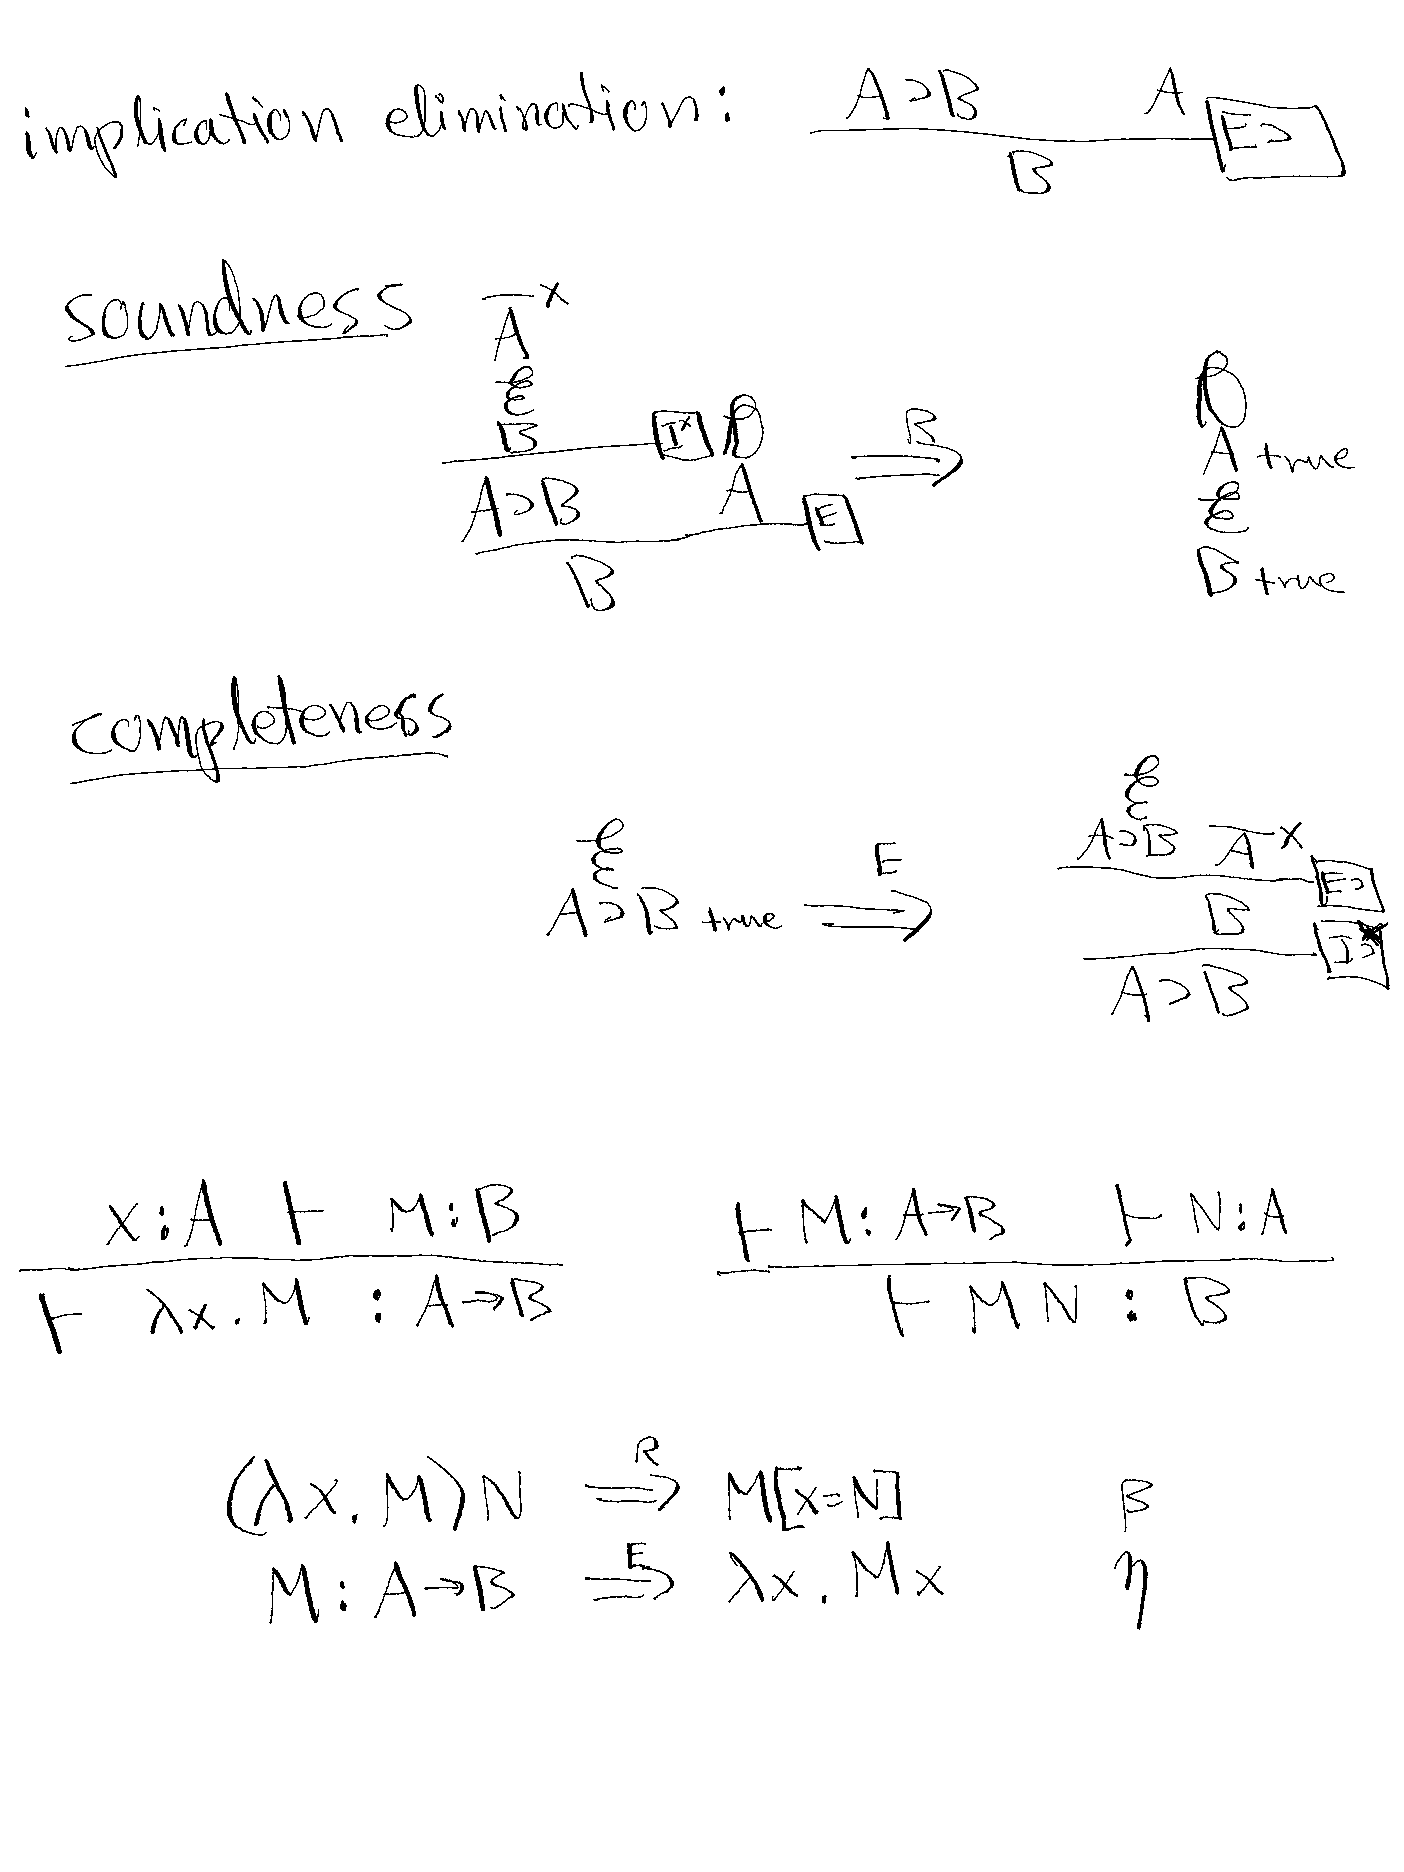 implication elimination: A⊃B A E⊃
B
soundness
x
A
ℰ
B I^x 𝒟
A⊃B A E
B
⟹^R
𝒟
A true
ℰ
B true
completeness
ℰ
A⊃B true ⟹^E
ℰ
A⊃B A x E⊃
B I⊃
A⊃B
x:A ⊢ M:B
⊢ λx.M : A→B
⊢ M: A→B ⊢ N:A
⊢ M N : B
(λx.M)N ⟹^R M[x=N] β
M: A→B ⟹^E λx.Mx η